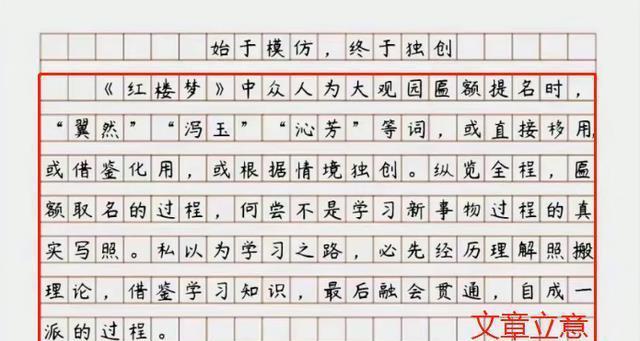 始于模仿，终于独创
《红楼梦》中众人为大观园匾额提名时，
“翼然”“泻玉”“沁芳”等词，或直接移用，
或借鉴化用，或根据情境独创。纵览全程，匾
额取名的过程，何尝不是学习新事物过程的真
实写照。私以为学习之路，必先经历理解照搬
理论，借鉴学习知识，最后融会贯通，自成一
派的过程。
文章立意